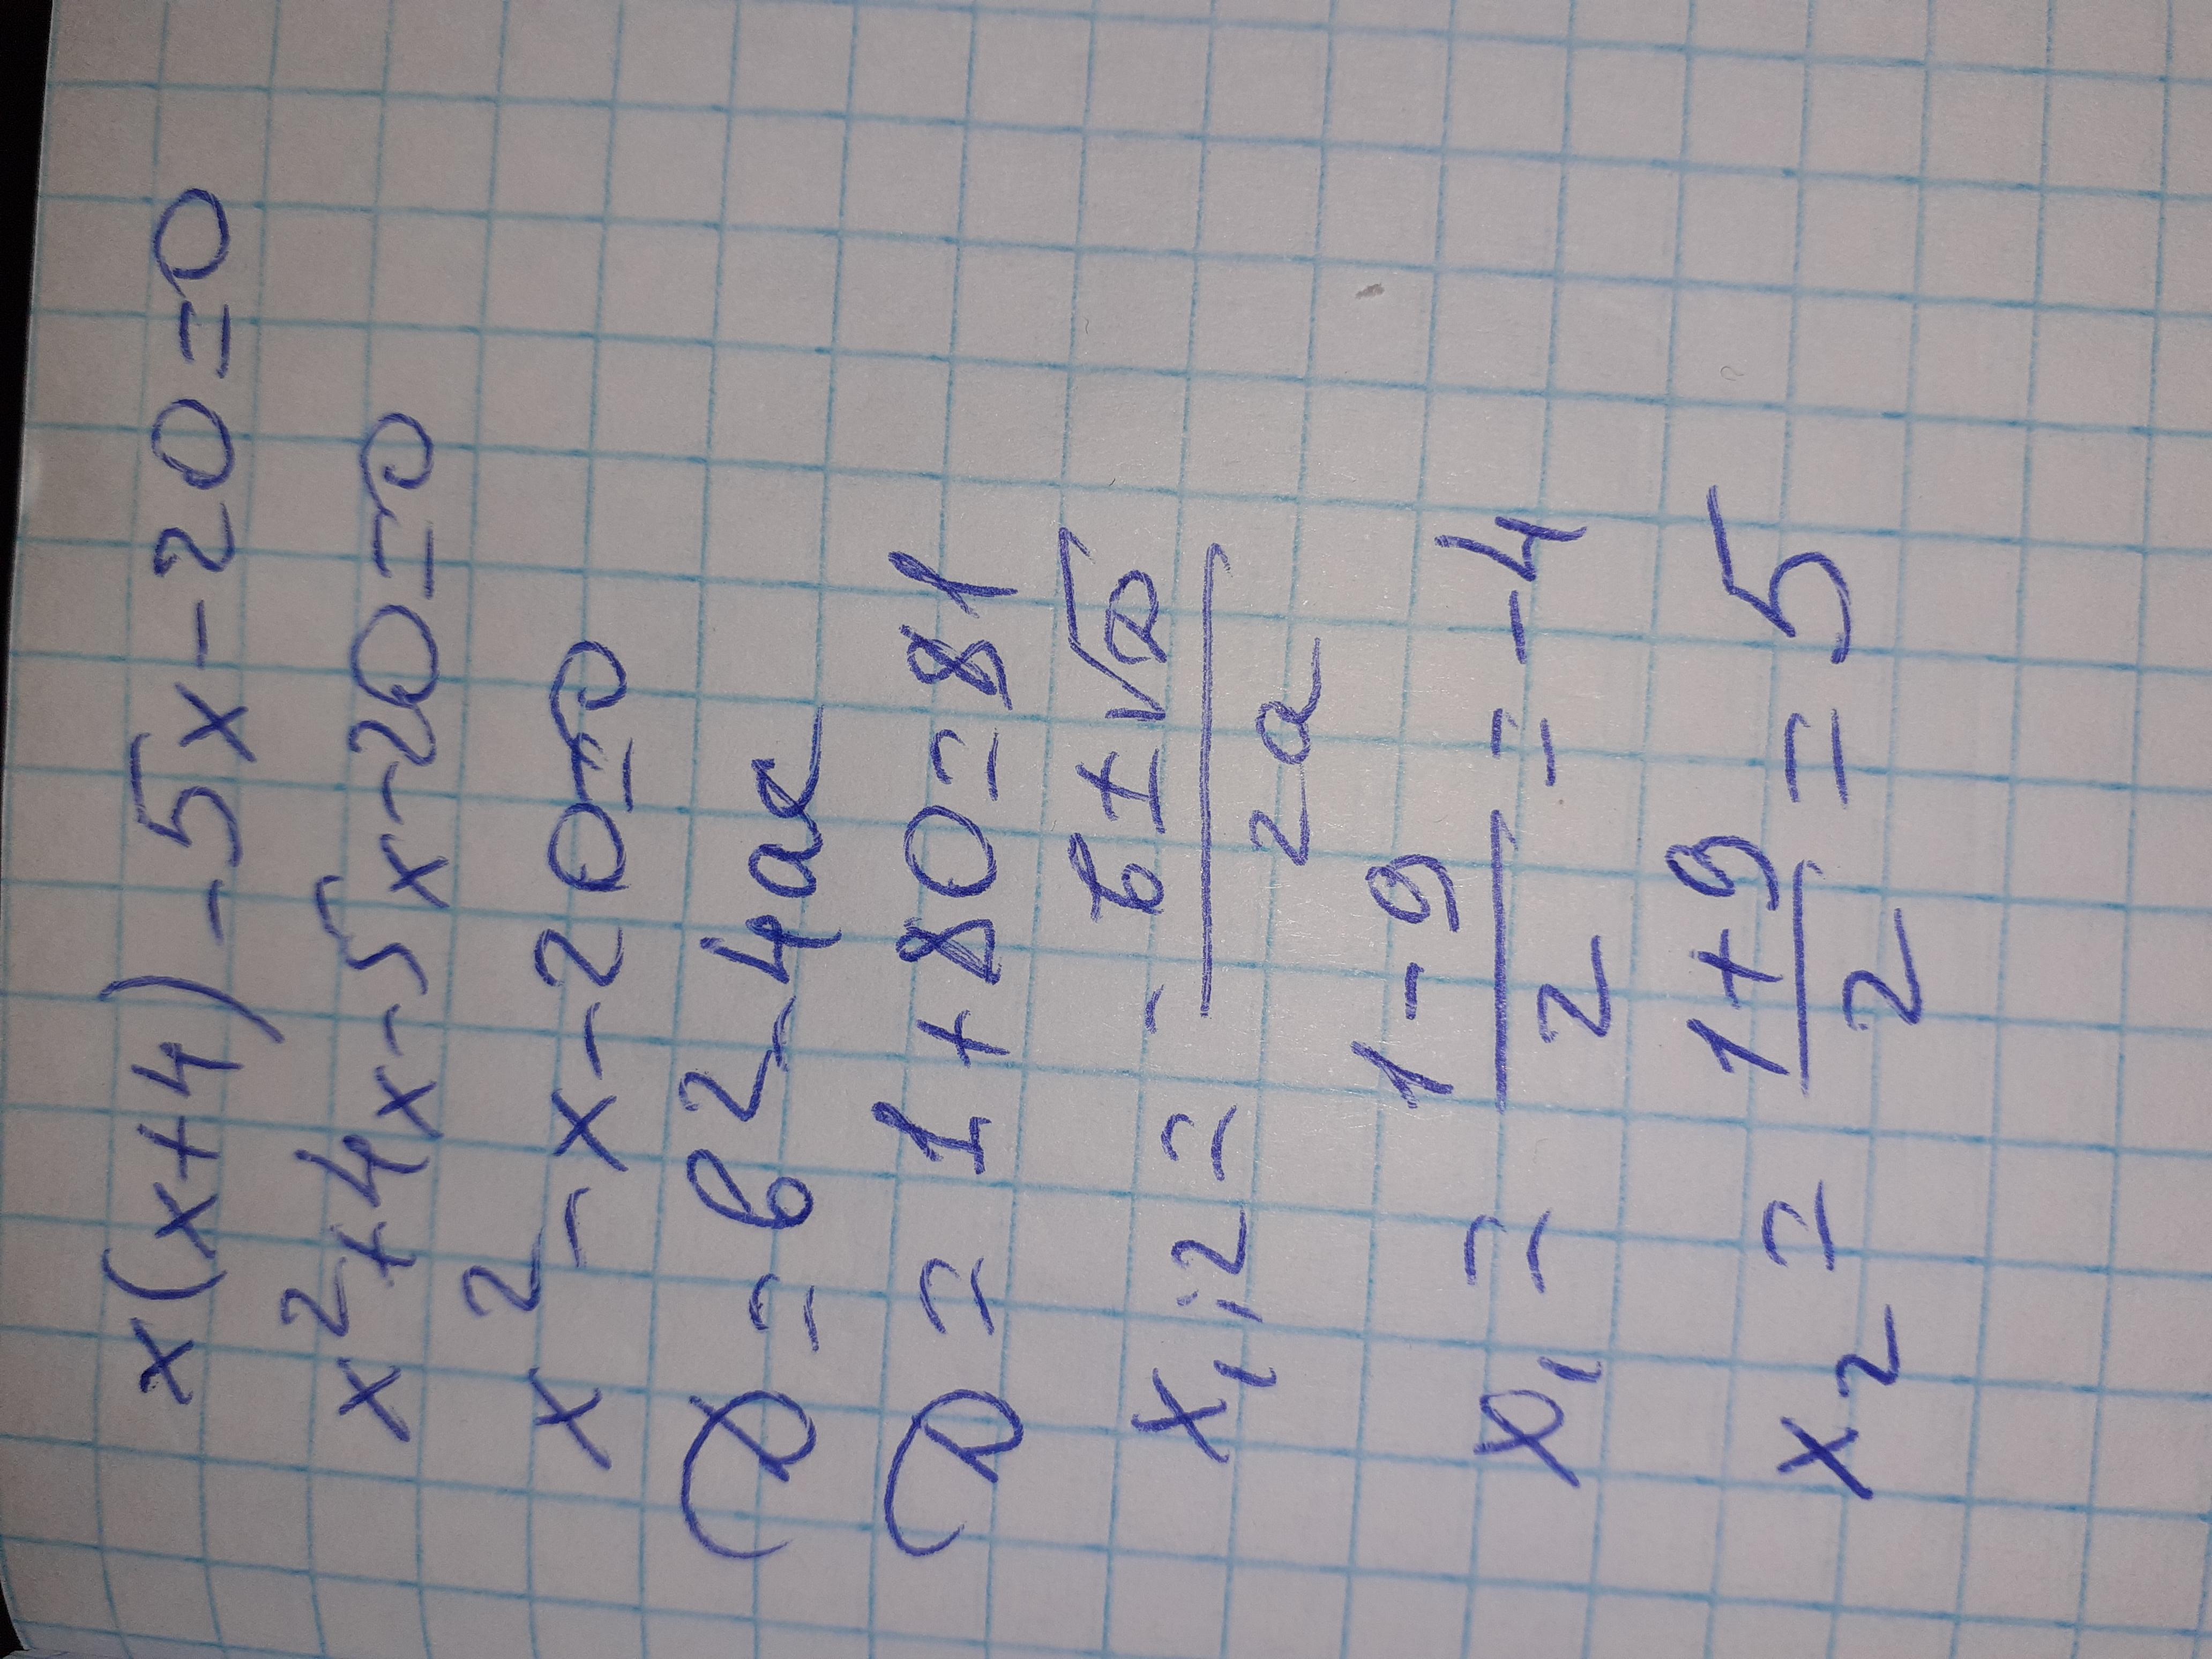 x(x+4)-5x-20=0
x²+4x-5x-20=0
x²-x-20=0
D=b²-4ac
D=1+80=81
x₁,₂=(-b±√D)/2a
x₁=(1-9)/2=-4
x₂=(1+9)/2=5